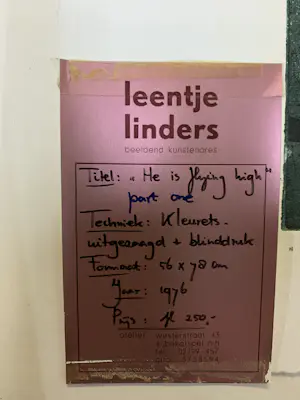 leentje
linders
beeldend kunstenares
Titel: „He is flying high"
part one
Techniek: Kleurets-
uitgezaagd + blinddruk
Formaat: 56 x 78 cm
Jaar: 1976
Prijs: fl 250,-
atelier